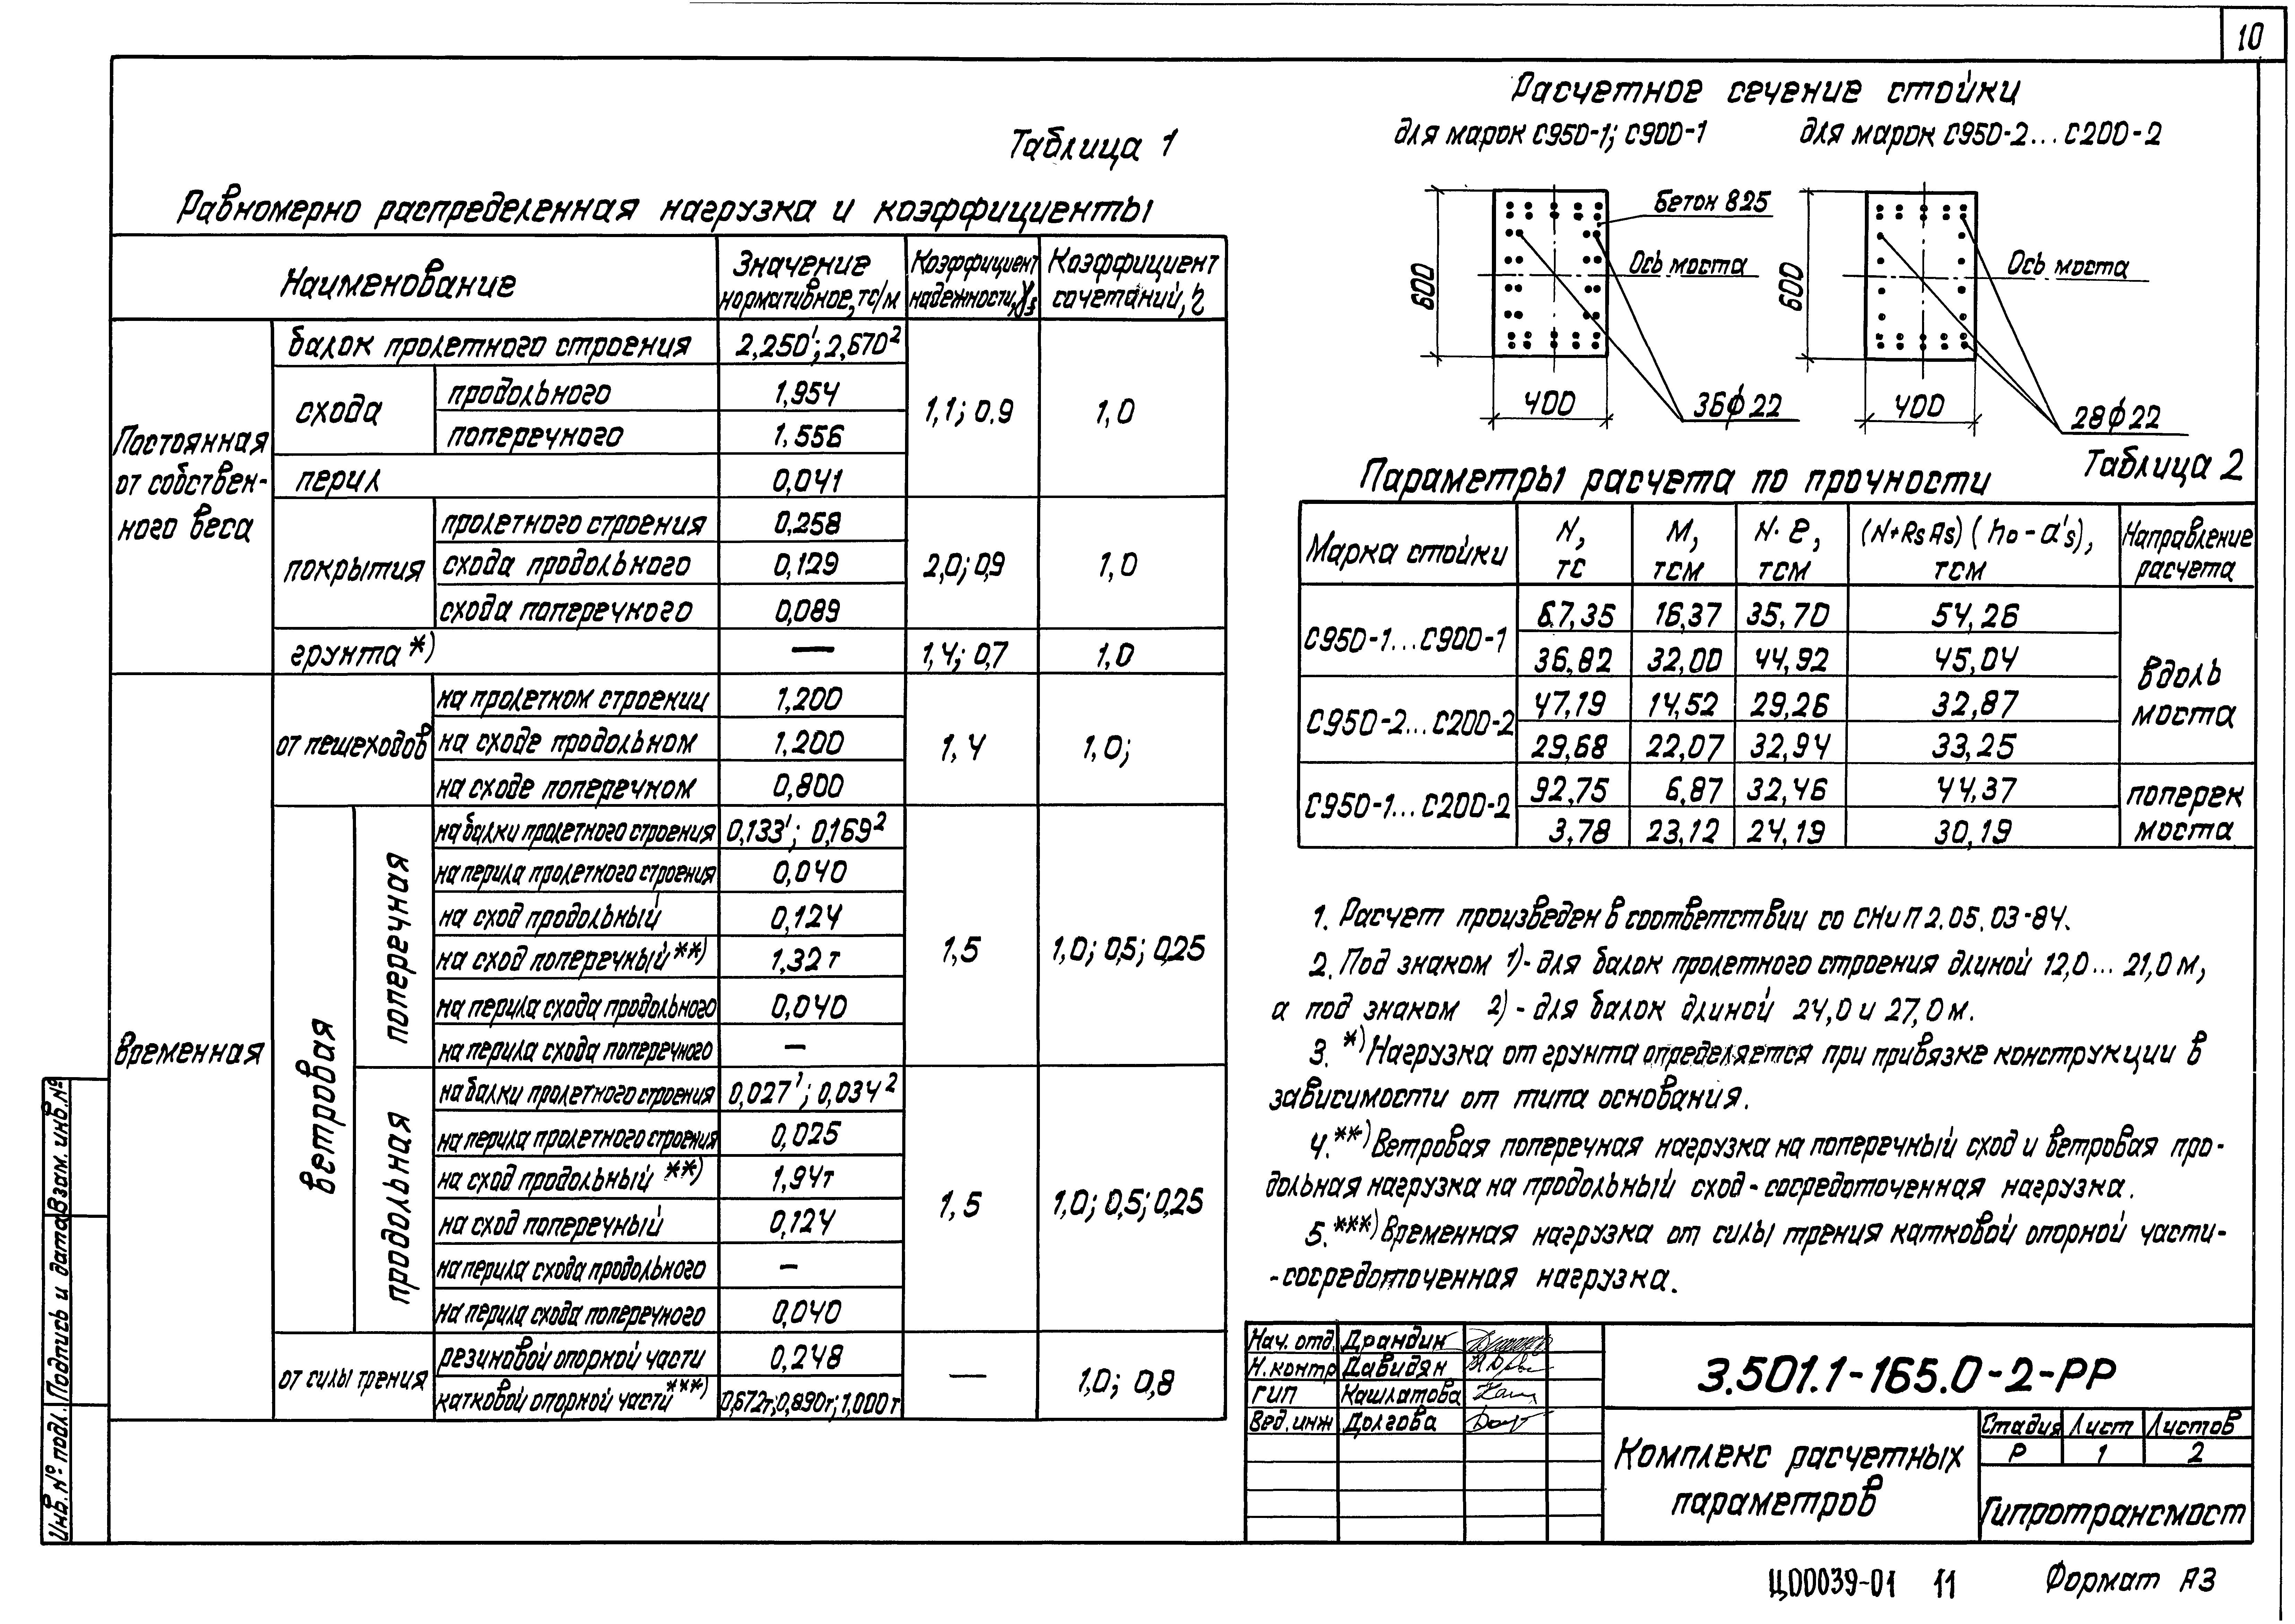 10
Таблица 1
Равномерно распределенная нагрузка и коэффициенты
Наименование
Значение нормативное, тс/м
Коэффициент надежности, γf
Коэффициент сочетаний, η
Постоянная от собствен-
ного веса
балок пролетного строения 2,250¹; 2,670²
схода
продольного 1,954
поперечного 1,556
1,1; 0,9 1,0
перил 0,041
покрытия
пролетного строения 0,258
схода продольного 0,129
схода поперечного 0,089
2,0; 0,9 1,0
грунта *) — 1,4; 0,7 1,0
Временная
от пешеходов
на пролетном строении 1,200
на сходе продольном 1,200
на сходе поперечном 0,800
1,4 1,0;
ветровая
поперечная
на балки пролетного строения 0,133¹; 0,169²
на перила пролетного строения 0,040
на сход продольный 0,124
на сход поперечный **) 1,32 т
на перила схода продольного 0,040
на перила схода поперечного —
1,5 1,0; 0,5; 0,25
продольная
на балки пролетного строения 0,027¹; 0,034²
на перила пролетного строения 0,025
на сход продольный **) 1,94т
на сход поперечный 0,124
на перила схода продольного —
на перила схода поперечного 0,040
1,5 1,0; 0,5; 0,25
от силы трения
резиновой опорной части 0,248
катковой опорной части ***) 0,672т; 0,890т; 1,000т
— 1,0; 0,8
Расчетное сечение стойки
для марок С950-1; С900-1
для марок С950-2...С200-2
Бетон В25
Ось моста
Ось моста
600
600
400
400
36ϕ22
28ϕ22
Таблица 2
Параметры расчета по прочности
Марка стойки
N, тс
М, тсм
N·e, тсм
(N+RsAs)(ho-a's), тсм
Направление расчета
С950-1...С900-1
67,35 16,37 35,70 54,26
36,82 32,00 44,92 45,04
С950-2...С200-2
47,19 14,52 29,26 32,87
29,68 22,07 32,94 33,25
вдоль моста
С950-1...С200-2
92,75 6,87 32,46 44,37
3,78 23,12 24,19 30,19
поперек моста
1. Расчет произведен в соответствии со СНиП 2.05.03-84.
2. Под знаком 1)- для балок пролетного строения длиной 12,0... 21,0 м,
а под знаком 2) - для балок длиной 24,0 и 27,0 м.
3. *) Нагрузка от грунта определяется при привязке конструкции в
зависимости от типа основания.
4.**) Ветровая поперечная нагрузка на поперечный сход и ветровая про-
дольная нагрузка на продольный сход - сосредоточенная нагрузка.
5.***) Временная нагрузка от силы трения катковой опорной части-
-сосредоточенная нагрузка.
Нач. отд. Драндин
Н.контр Давидян
ГИП Кашлатова
Вед.инж Долгова
3.501.1-165.0-2-РР
Комплекс расчетных
параметров
Стадия Лист Листов
Р 1 2
Гипротрансмост
Инв.№ подл. Подпись и дата Взам. инв.№
Ц00039-01 11
Формат А3